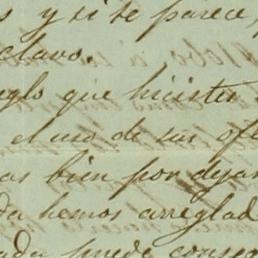 s y si te parece,
clavo.
glo que hicistes
el uso de sus ofe
as bien por dejar
da hemos arreglad
ada puede conseg